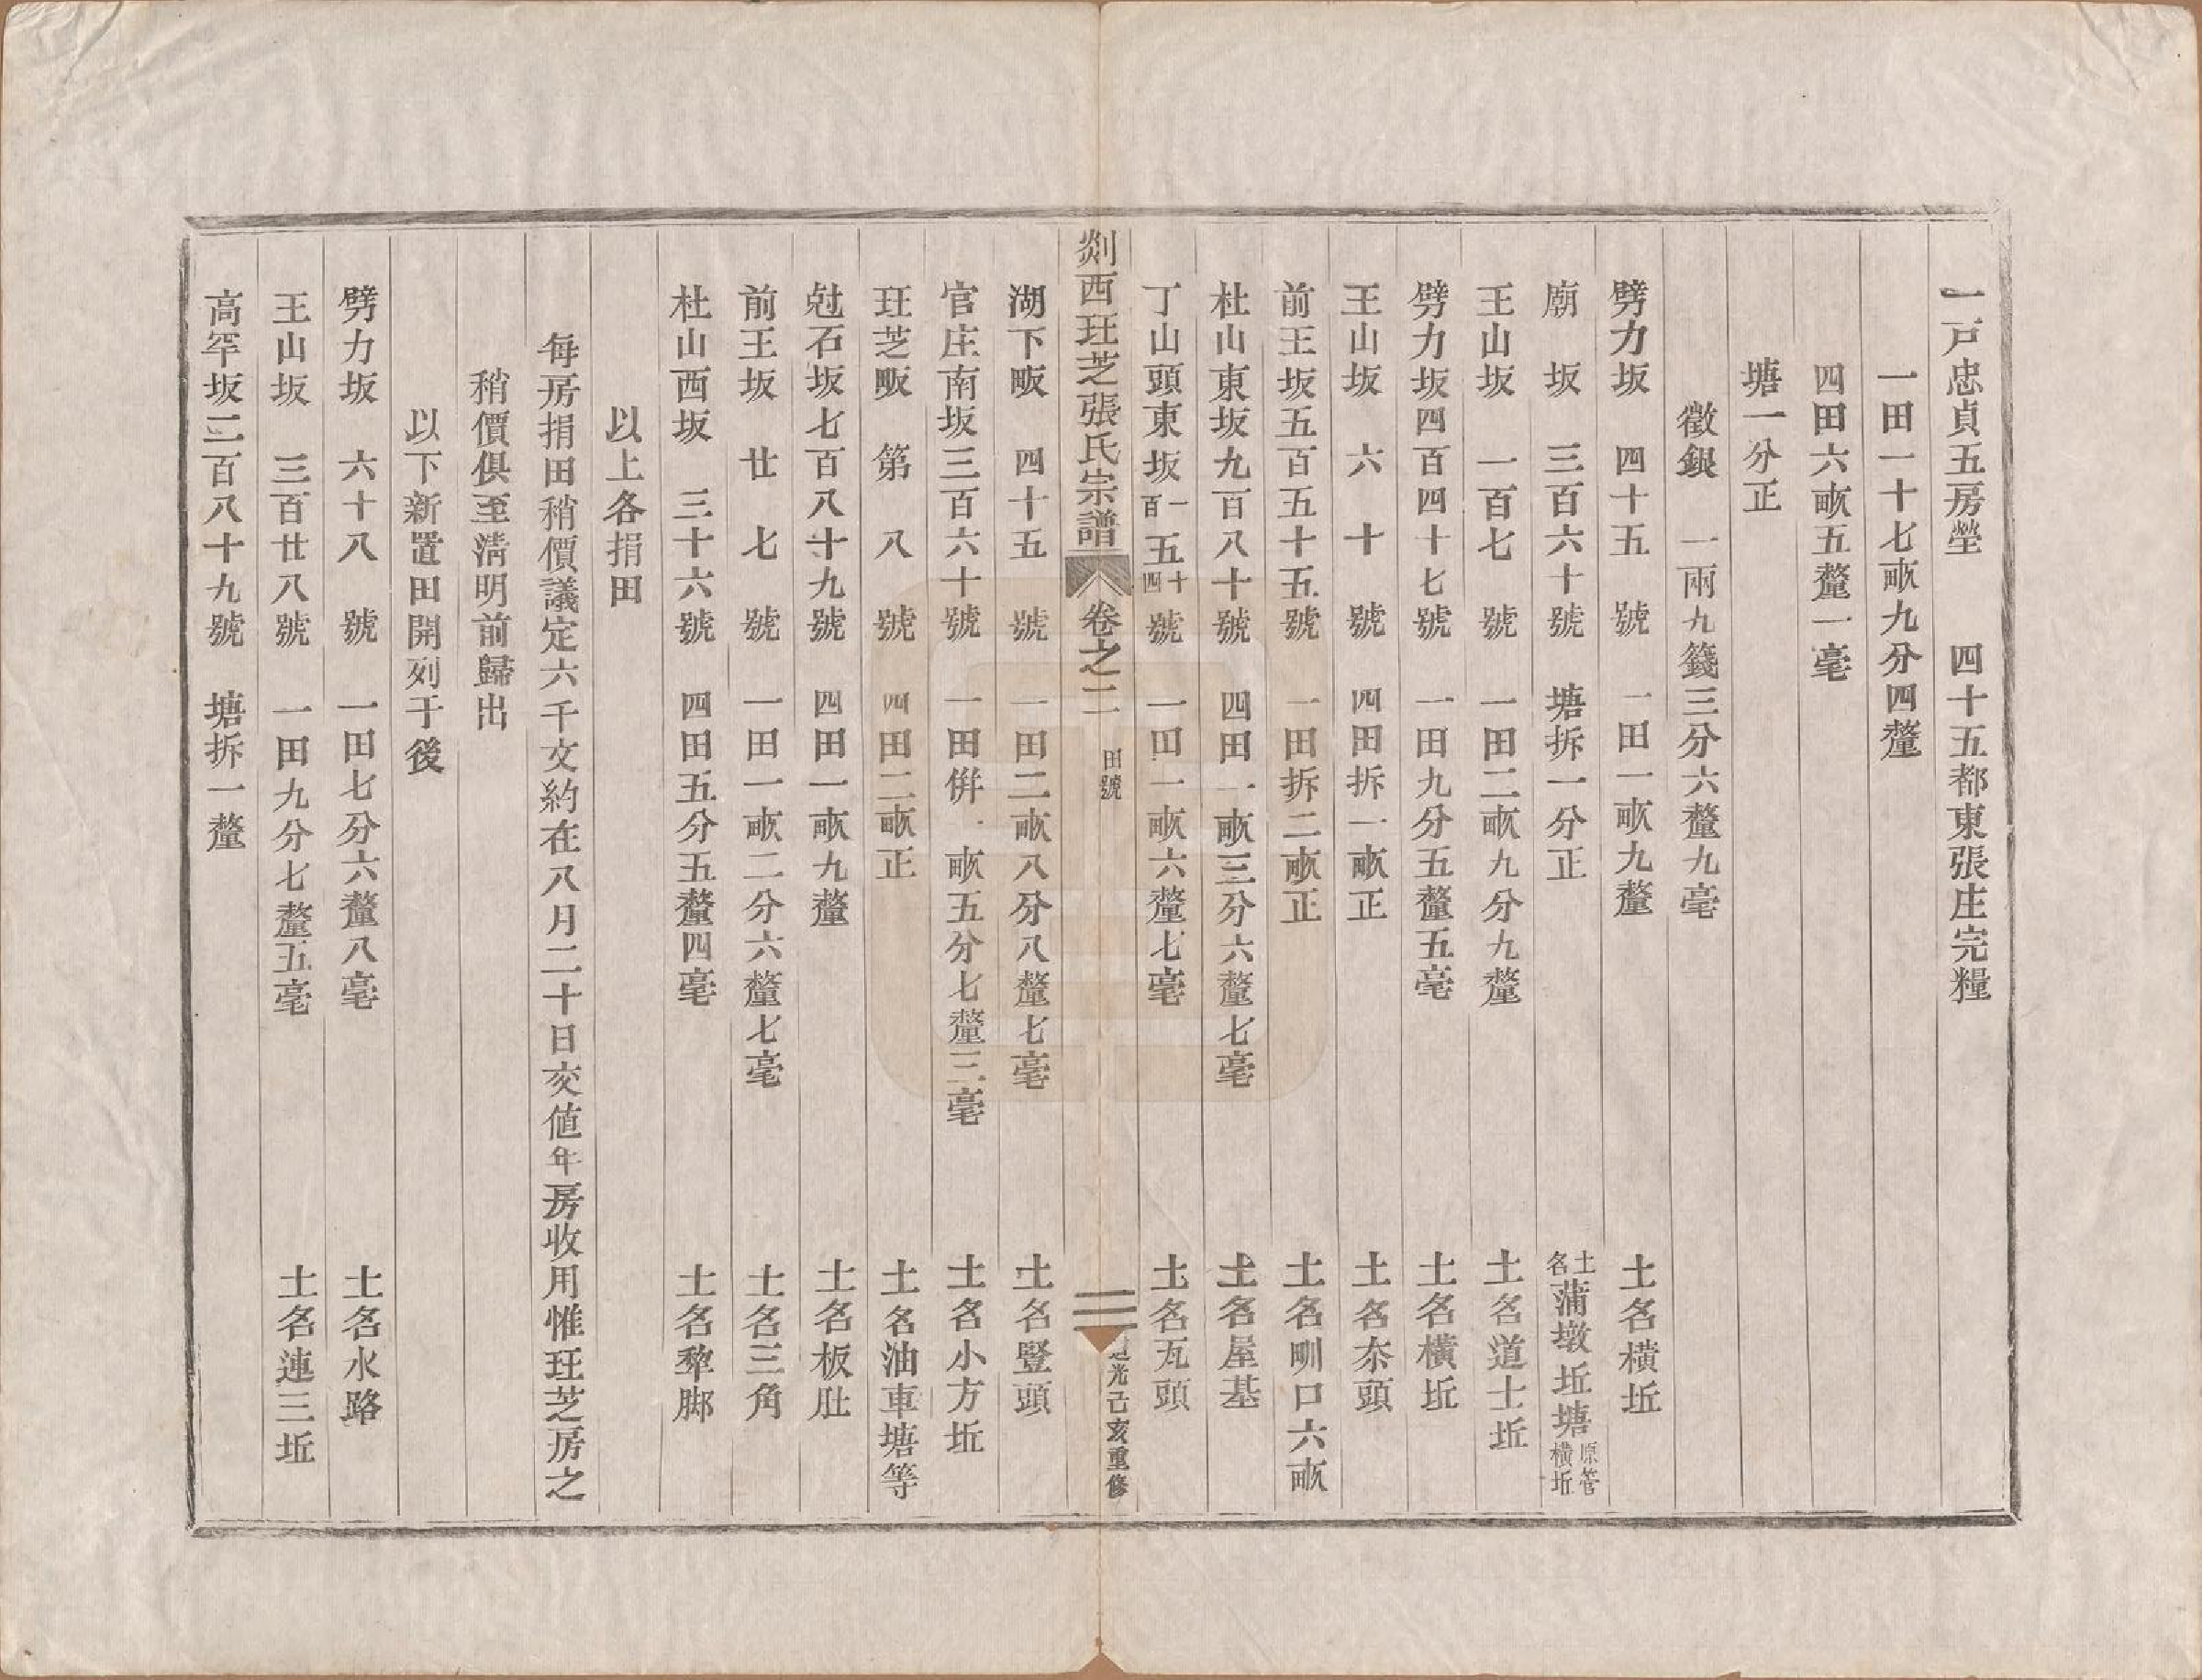 一戸忠貞五房塋　四十五都東張庄完糧
一田一十七畝九分四釐
四田六畝五釐一毫
塘一分正
徵銀　一兩九錢三分六釐九毫
劈力坂　四十五　號　一田一畝九釐　土名橫坵
廟　坂　三百六十號　塘拆一分正　土名蒲墩坵塘原管橫坵
王山坂　一百七　號　一田二畝九分九釐　土名道士坵
劈力坂四百四十七號　一田九分五釐五毫　土名橫坵
王山坂　六　十　號　四田拆一畝正　土名夵頭
前王坂五百五十五號　一田拆二畝正　土名甽口六畝
杜山東坂九百八十號　四田一畝三分六釐七毫　土名屋基
丁山頭東坂一百五十四號　一田一畝六釐七毫　土名瓦頭
剡西珏芝張氏宗譜　卷之二　田號　三　道光己亥重修
湖下畈　四十五　號　一田二畝八分八釐七毫　土名豎頭
官庄南坂三百六十號　一田併一畝五分七釐三毫　土名小方坵
珏芝畈　第　八　號　四田二畝正　土名油車塘等
尅石坂七百八十九號　四田一畝九釐　土名板肚
前王坂　廿　七　號　一田一畝二分六釐七毫　土名三角
杜山西坂　三十六號　四田五分五釐四毫　土名犂脚
以上各捐田
每房捐田稍價議定六千文約在八月二十日交值年房收用惟珏芝房之
稍價俱至淸明前歸出
以下新置田開列于後
劈力坂　六十八　號　一田七分六釐八毫　土名水路
王山坂　三百廿八號　一田九分七釐五毫　土名連三坵
高罕坂二百八十九號　塘拆一釐